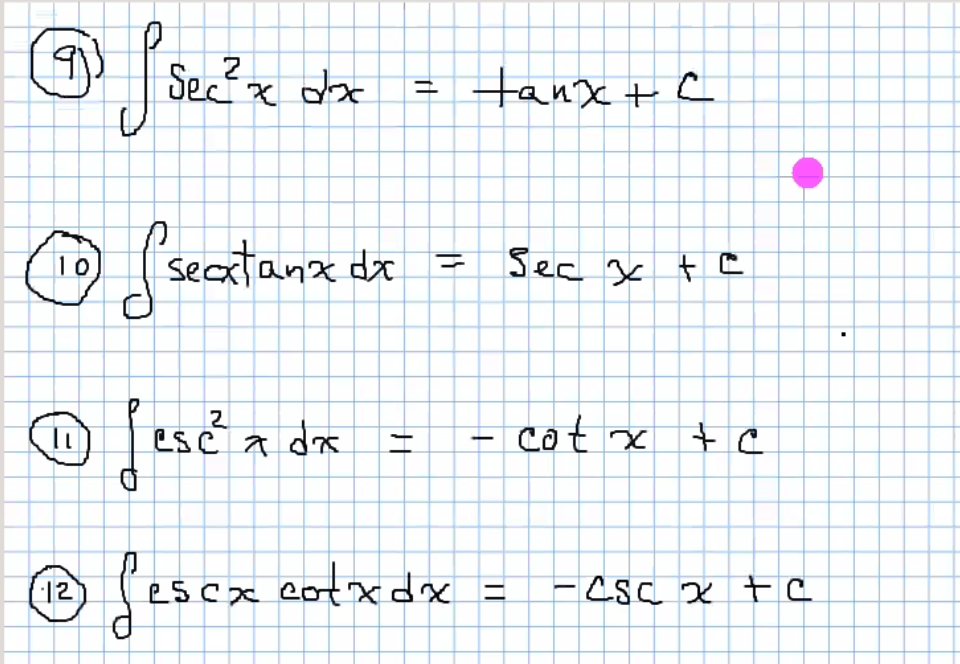 9) ∫ sec² x dx = tanx + C
10 ∫ secxtanx dx = sec x + c
11 ∫ csc² x dx = - cot x + c
12 ∫ cscx cotx dx = -csc x + c